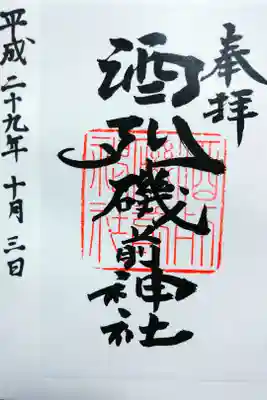 奉拝
酒列磯前神社
平成二十九年十月三日